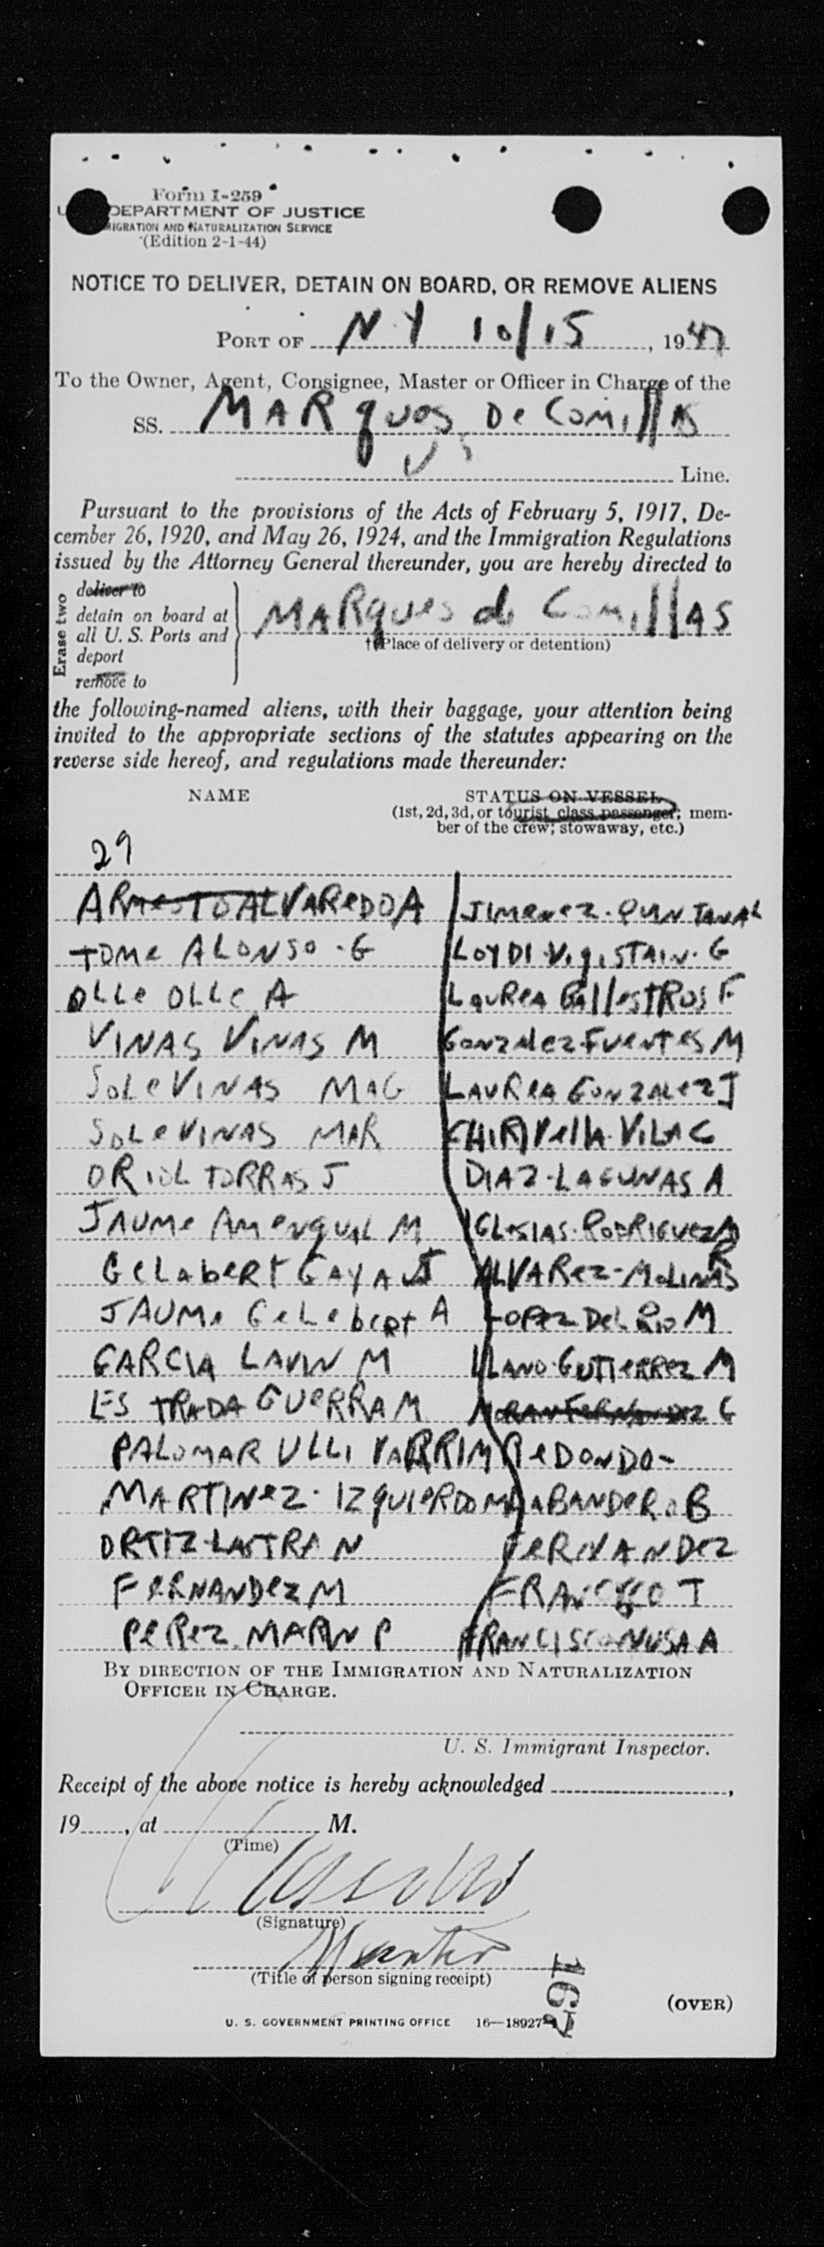 Form I-259
DEPARTMENT OF JUSTICE
IMMIGRATION AND NATURALIZATION SERVICE
(Edition 2-1-44)
NOTICE TO DELIVER, DETAIN ON BOARD, OR REMOVE ALIENS
PORT OF N.Y 10/15, 1947
To the Owner, Agent, Consignee, Master or Officer in Charge of the
SS. MARques De ComillAs
Line.
Pursuant to the provisions of the Acts of February 5, 1917, De-
cember 26, 1920, and May 26, 1924, and the Immigration Regulations
issued by the Attorney General thereunder, you are hereby directed to
Erase two
deliver to
detain on board at
all U. S. Ports and
deport
remove to
MARques de ComillAS
(Place of delivery or detention)
the following-named aliens, with their baggage, your attention being
invited to the appropriate sections of the statutes appearing on the
reverse side hereof, and regulations made thereunder:
NAME STATUS ON VESSEL
(1st, 2d, 3d, or tourist class passenger; mem-
ber of the crew; stowaway, etc.)
29
ARMESTO ALVAReDO A JIMeneZ-QUINTANAL
TOMe ALONSO-G LOYDI-VigiSTAIN-G
OLLe OLLe A LAuRea BAllesTRos F
VINAS VINAS M GonzAlez Fuentes M
SoLe VINAS MAG LAuRea GonzAlez J
SoLe VINAS MAR CHIRIVellA-VILA C
ORIOL TORRAS J DIAZ-LAGUNAS A
JAUMe Amengual M IGLesIAS-RODRIGUEZ M
GeLabeRt GAYA J ALVARez-MoLINAS R
JAUMe GeLabert A LOPez DeL Rio M
GARCIA LAVIN M LLANO-GUTIERRez M
ESTRADA GUeRRA M MORAN FERNANDEZ G
PALOMAR ULLI M ReDoNDo-
MARTINez-IZquieRDO M LABANDeRA B
ORTIZ-LASTRA N FeRNANDez
FeRNANDez M FRANCISCO T
PeRez MARIN P FRANCISCO NUSA A
BY DIRECTION OF THE IMMIGRATION AND NATURALIZATION
OFFICER IN CHARGE.
U. S. Immigrant Inspector.
Receipt of the above notice is hereby acknowledged ,
19 , at M.
(Time)
(Signature)
Master
(Title of person signing receipt)
167
(OVER)
U. S. GOVERNMENT PRINTING OFFICE 16—18927